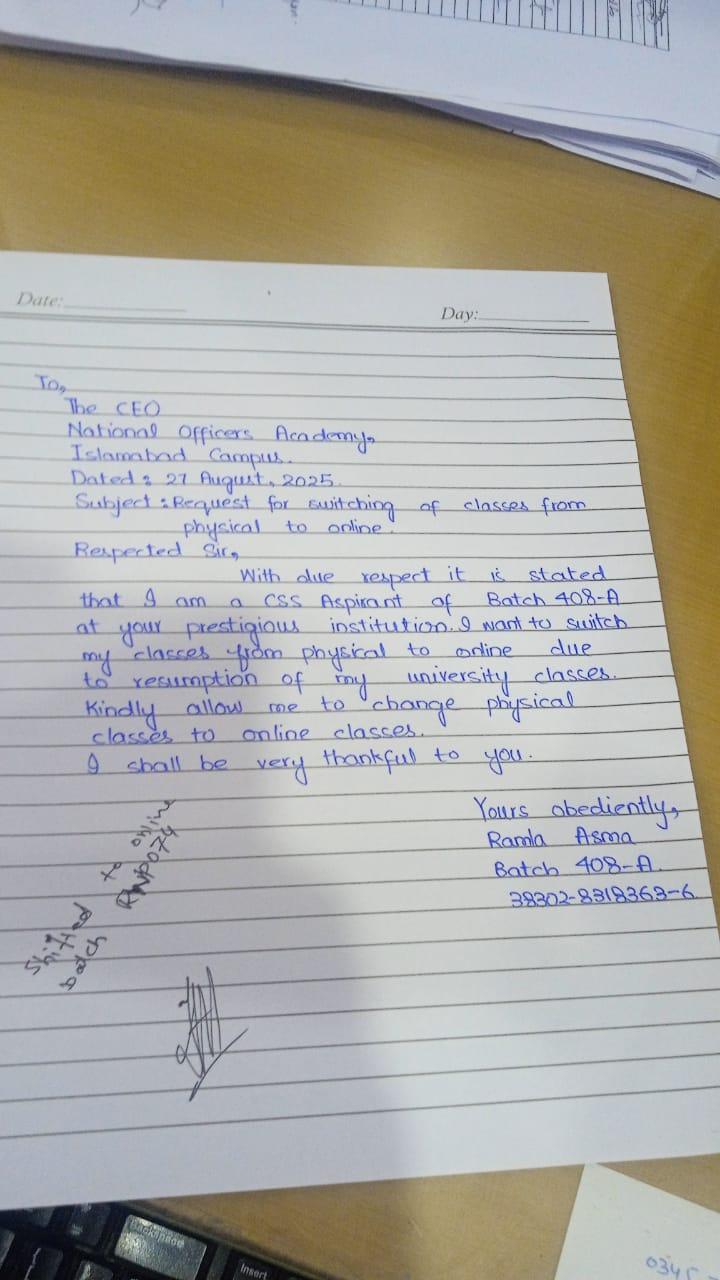 Date:
Day:
To,
The CEO
National Officers Academy,
Islamabad Campus.
Dated : 27 August, 2025.
Subject : Request for switching of classes from
physical to online.
Respected Sir,
With due respect it is stated
that I am a CSS Aspirant of Batch 408-A
at your prestigious institution. I want to switch
my classes from physical to online due
to resumption of my university classes.
Kindly allow me to change physical
classes to online classes.
I shall be very thankful to you.
Yours obediently,
Ramla Asma
Batch 408-A.
38302-8318363-6
Shifted to online
batch RWP074
Backspace
Insert